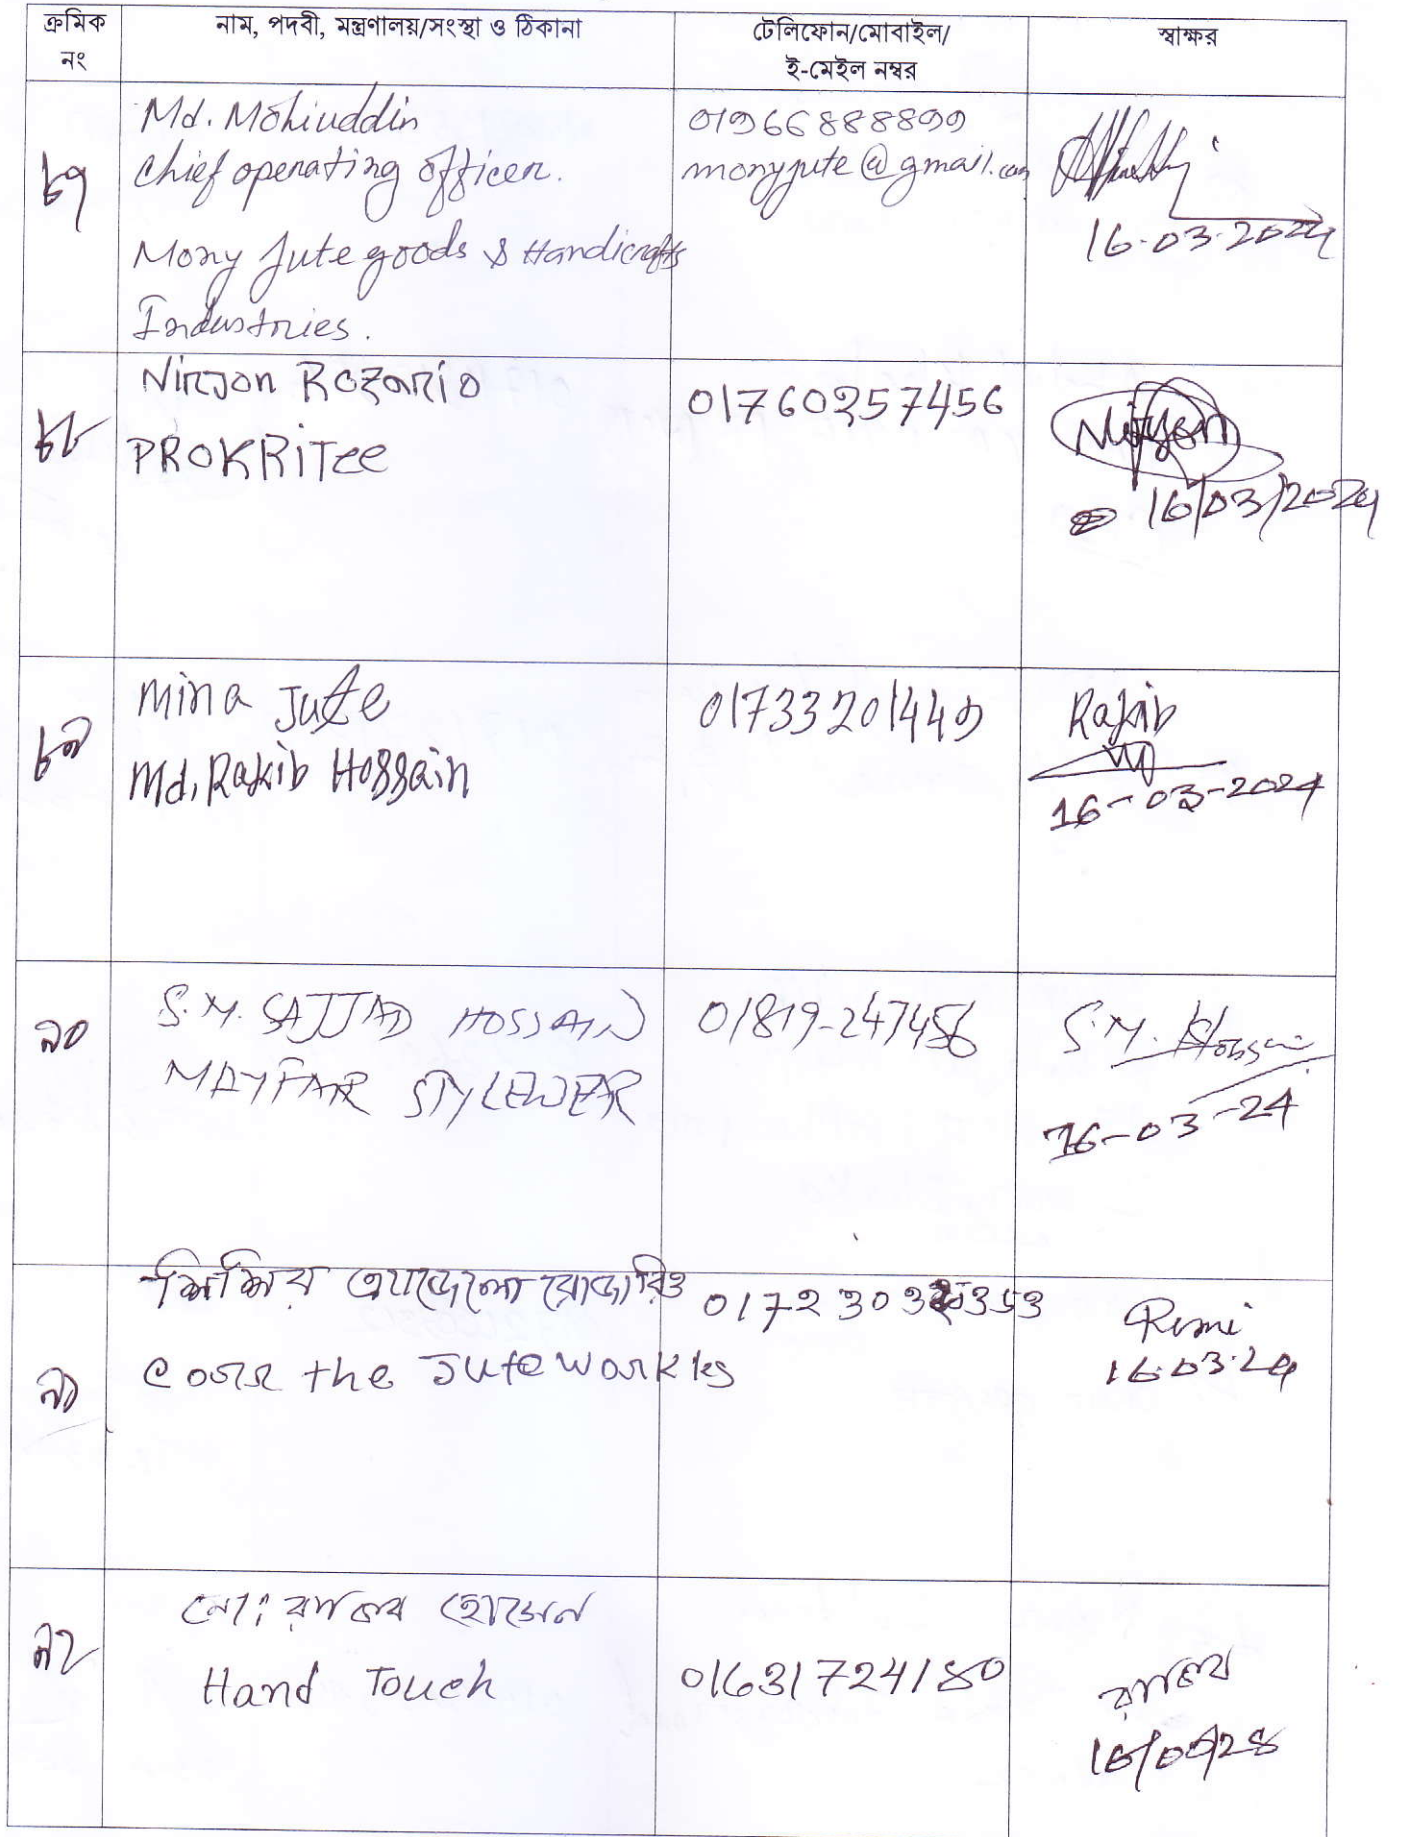 ক্রমিক নং
নাম, পদবী, মন্ত্রণালয়/সংস্থা ও ঠিকানা
টেলিফোন/মোবাইল/
ই-মেইল নম্বর
স্বাক্ষর
৮৭
Md. Mohiuddin
chief operating officer.
Mony Jute goods & Handicrafts
Industries.
01966888899
monyjute@gmail.com
16.03.2024
৮৮
Nirjon Rozario
PROKRITEE
01760257456
Nirjon
16/03/2024
৮৯
Mina Jute
Md, Rakib Hossain
01733201449
Rakib
16-03-2024
৯০
S.M. SAJJAD HOSSAIN
MAYFAIR STYLEWEAR
01819-247456
S.M. Hossain
16-03-24
৯১
রোজারিও
Corr the Jute works
Rimi
16.03.24
৯২
মোঃ রাকিব হোসেন
Hand Touch
01631724180
রাকিব